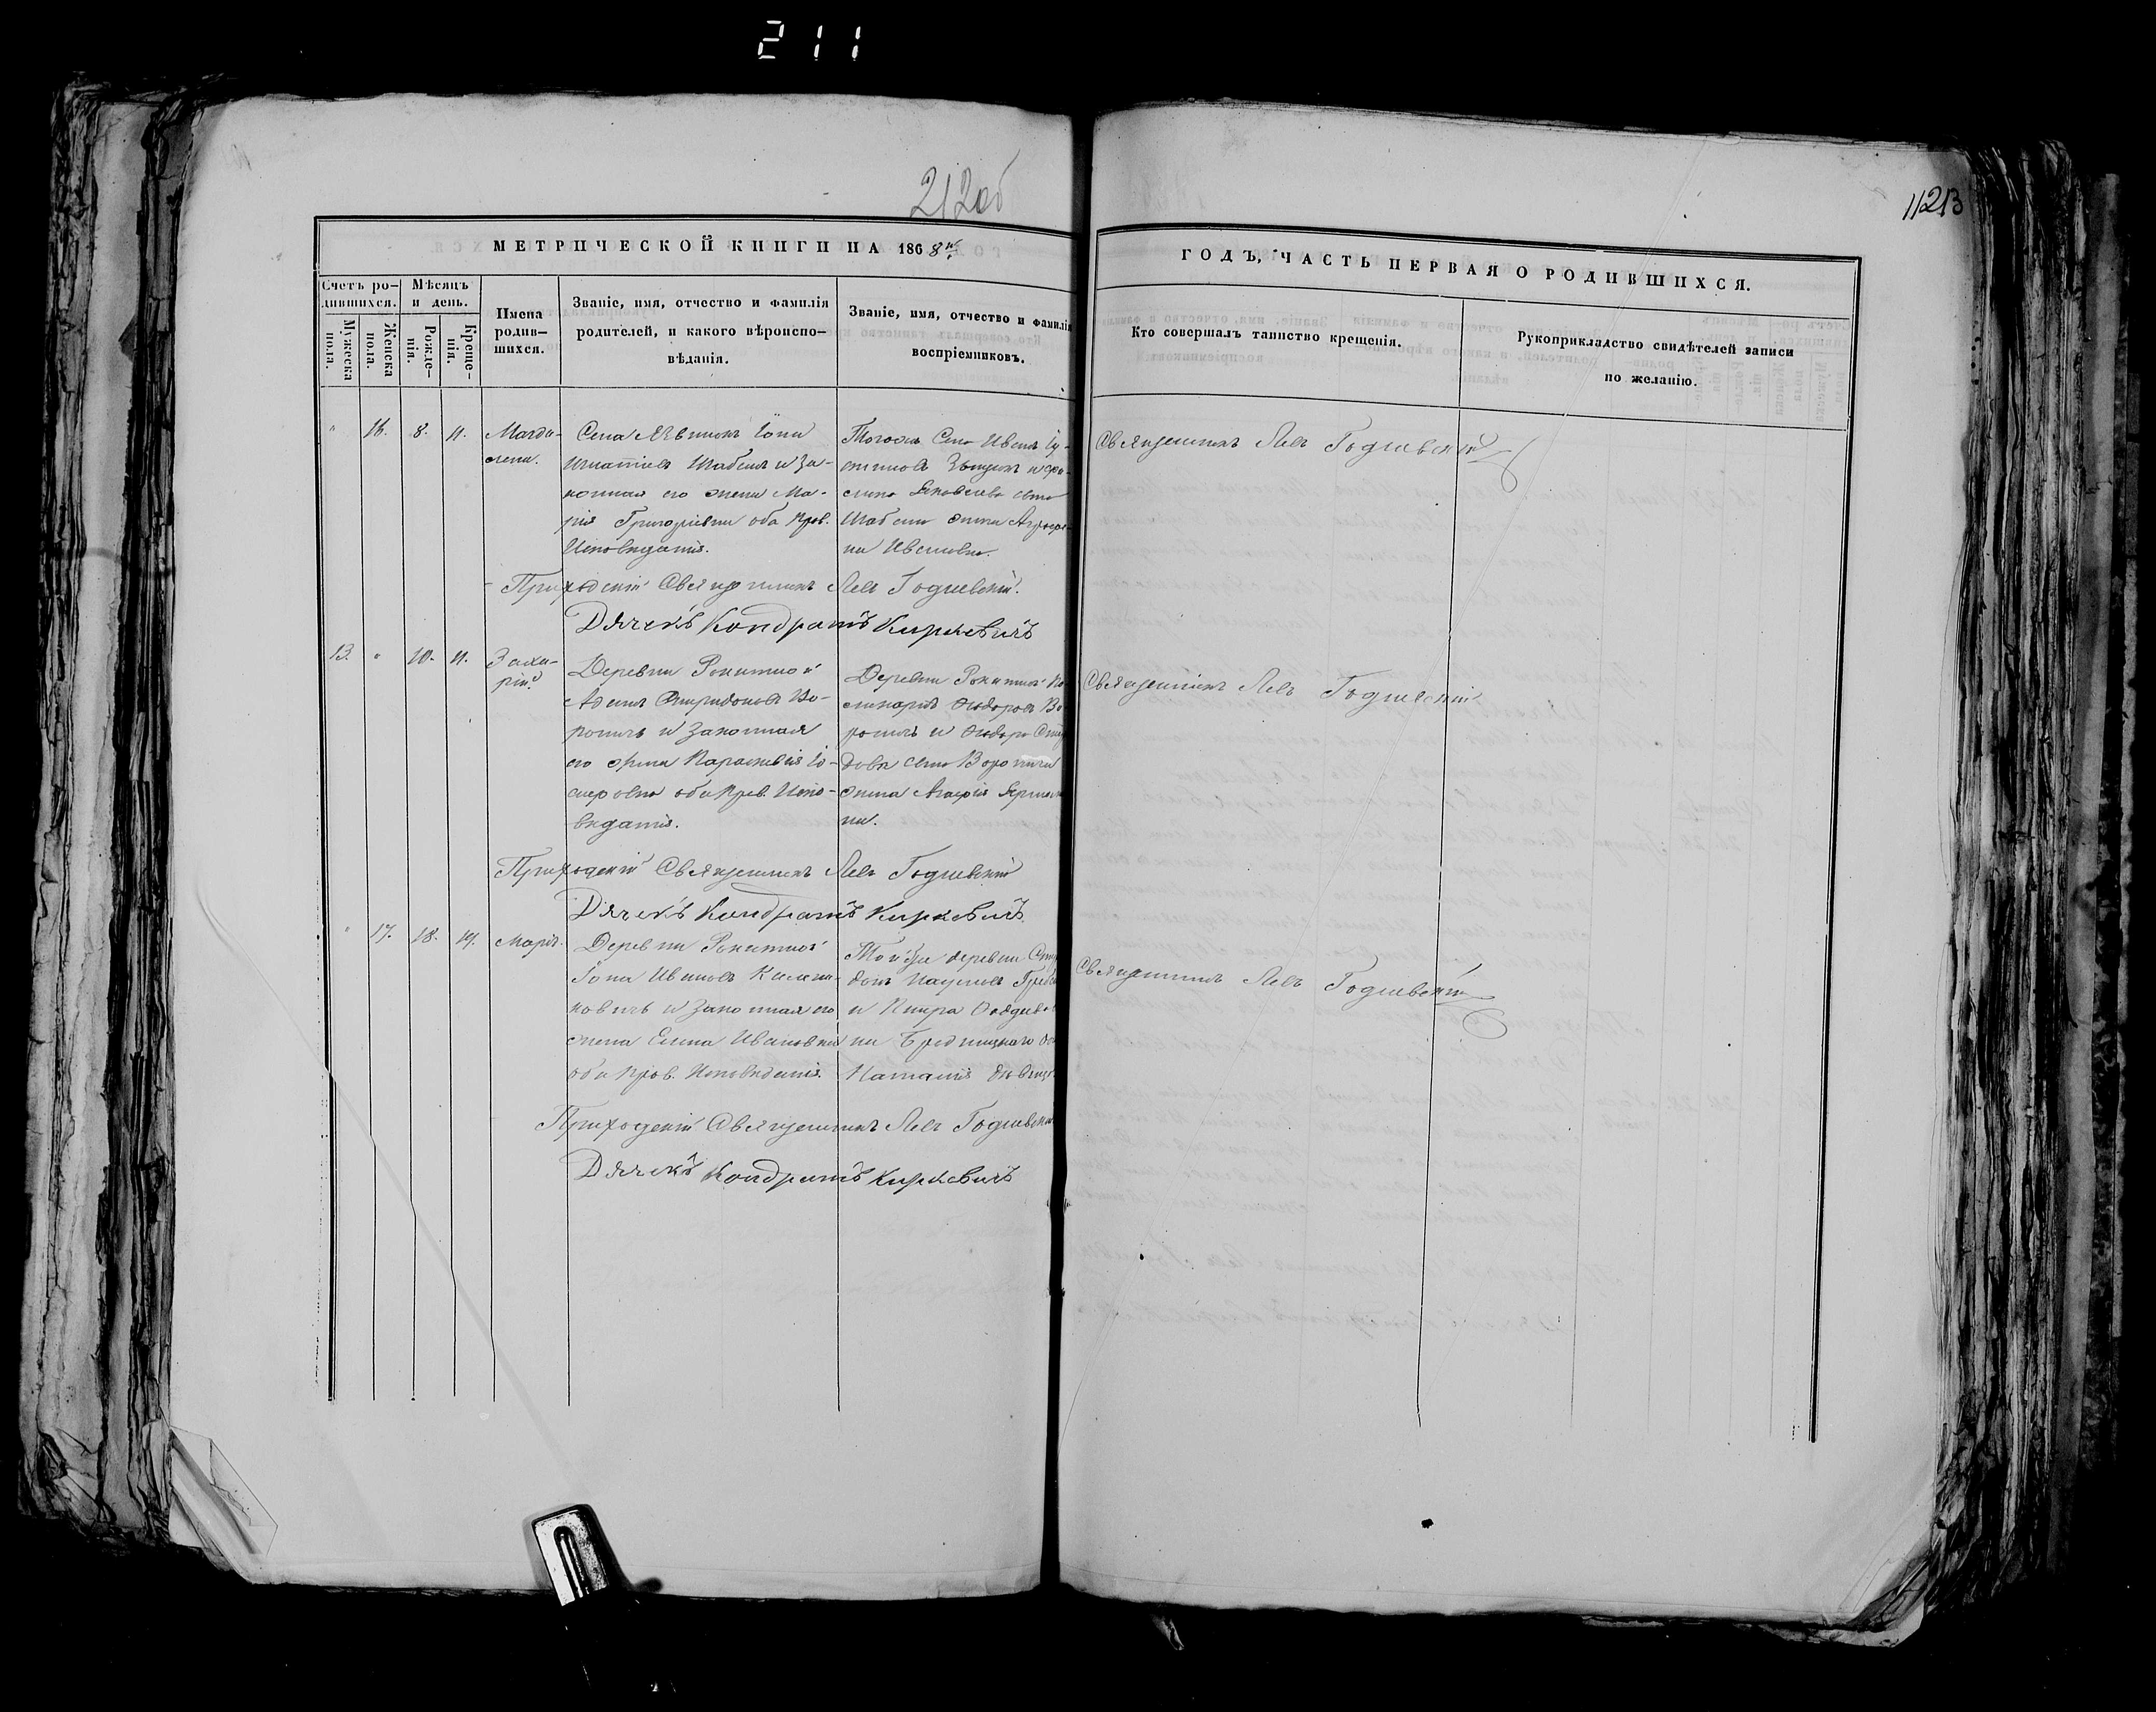 211
212об
11213
МЕТРИЧЕСКОЙ КНИГИ НА 1868й
ГОДЪ, ЧАСТЬ ПЕРВАЯ О РОДИВШИХСЯ.
Счетъ ро-
дившихся.
Мужеска
пола.
Женска
пола.
Мѣсяцъ
и день.
Рожде-
нія.
Креще-
нія.
Имена
родив-
шихся.
Званіе, имя, отчество и фамилія
родителей, и какого вѣроиспо-
вѣданія.
Званіе, имя, отчество и фамилія
воспріемниковъ.
Кто совершалъ таинство крещенія.
Рукоприкладство свидѣтелей записи
по желанію.
" 16. 8. 11.
Магда-
лена.
Села Іона
Игнатіевъ Шабанъ и за-
конная его жена Ма-
рія Григоріевна оба прав.
Исповѣданія.
Тогожъ Села Иванъ
и кре-
Яковлева
жена Агрофе-
на Иванова.
Священникъ Левъ Годлевскій
Приходскій Священникъ Левъ Годлевскій.
Дячекъ Кондратъ Киркевичъ
13. " 10. 11.
Заха-
рій.
Деревни Рокитной
Адамъ Спиридоновъ Во-
роничъ и законная
его жена Параскевія Іо-
сифовна оба прав. Испо-
вѣданія.
Деревни Рокитной
Ѳедоровъ Во-
роничъ и
Воронича
жена Агафія
на.
Священникъ Левъ Годлевскій
Приходскій Священникъ Левъ Годлевскій
Дячекъ Кондратъ Киркевичъ
" 17. 18. 19.
Марія.
Деревни Рокитной
Іона Ивановъ Клима-
ковичъ и законная его
жена Елена Ивановна
оба прав. Исповѣданія.
Той же деревни
донъ Наумовъ
и Кира
на
Наталія дѣвица
Священникъ Левъ Годлевскій
Приходскій Священникъ Левъ Годлевскій
Дячекъ Кондратъ Киркевичъ